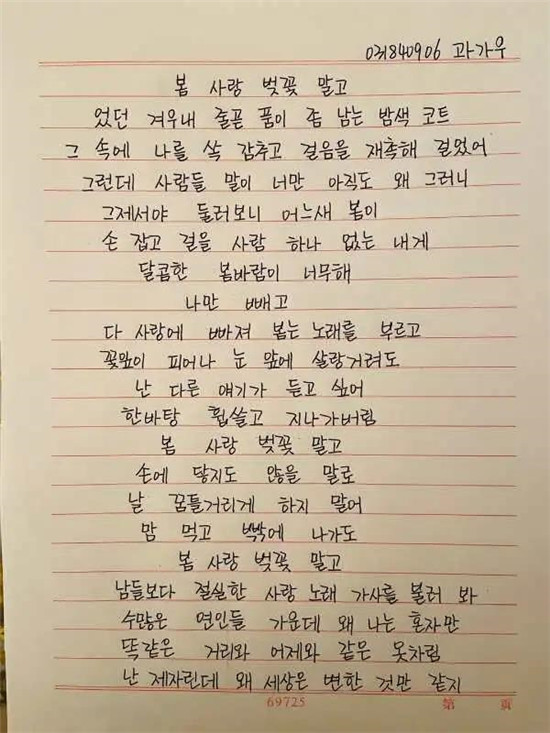 031840906 곽가우
봄 사랑 벚꽃 말고
었던 겨우내 줄곧 품이 좀 남는 밤색 코트
그 속에 나를 쏙 감추고 걸음을 재촉해 걸었어
그런데 사람들 말이 너만 아직도 왜 그러니
그제서야 둘러보니 어느새 봄이
손 잡고 걸을 사람 하나 없는 내게
달콤한 봄바람이 너무해
나만 빼고
다 사랑에 빠져 봄는 노래를 부르고
꽃잎이 피어나 눈 앞에 살랑거려도
난 다른 얘기가 듣고 싶어
한바탕 휩쓸고 지나가버림
봄 사랑 벚꽃 말고
손에 닿지도 않을 말로
날 꿈틀거리게 하지 말어
맘 먹고 밖에 나가도
봄 사랑 벚꽃 말고
남들보다 절실한 사랑 노래 가사를 불러 봐
수많은 연인들 가운데 왜 나는 혼자만
똑같은 거리와 어제와 같은 옷차림
난 제자린데 왜 세상은 변한 것만 같지
69725
第 頁